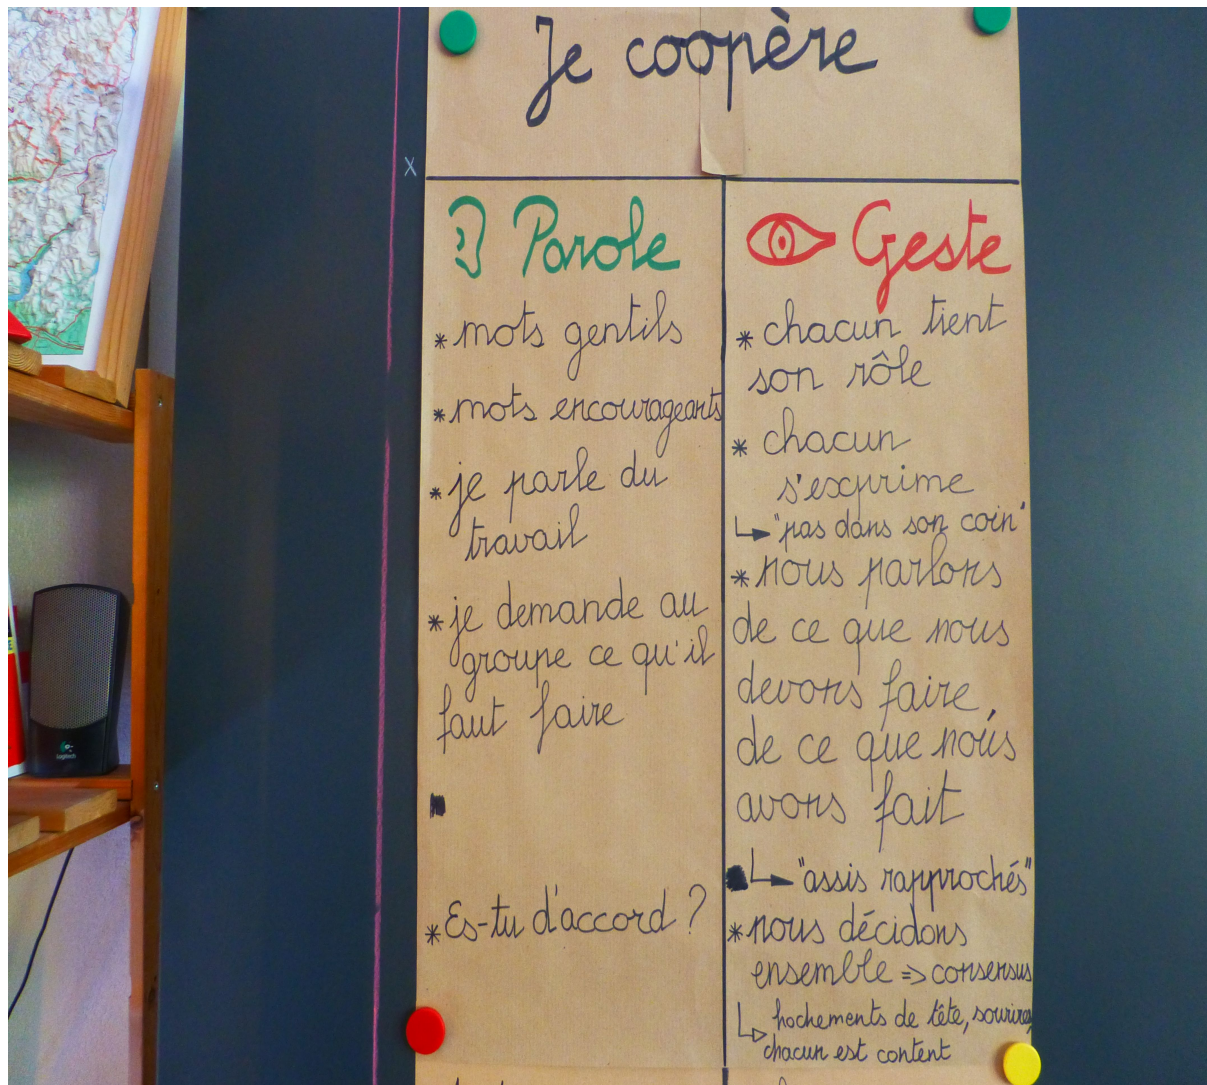 Je coopère
Parole
* mots gentils
* mots encourageants
* je parle du
travail
* je demande au
groupe ce qu'il
faut faire
* Es-tu d'accord ?
Geste
* chacun tient
son rôle
* chacun
s'exprime
↳ "pas dans son coin"
* nous parlons
de ce que nous
devons faire,
de ce que nous
avons fait
↳ "assis rapprochés"
* nous décidons
ensemble => consensus
↳ hochements de tête, sourires,
chacun est content
x
Logitech